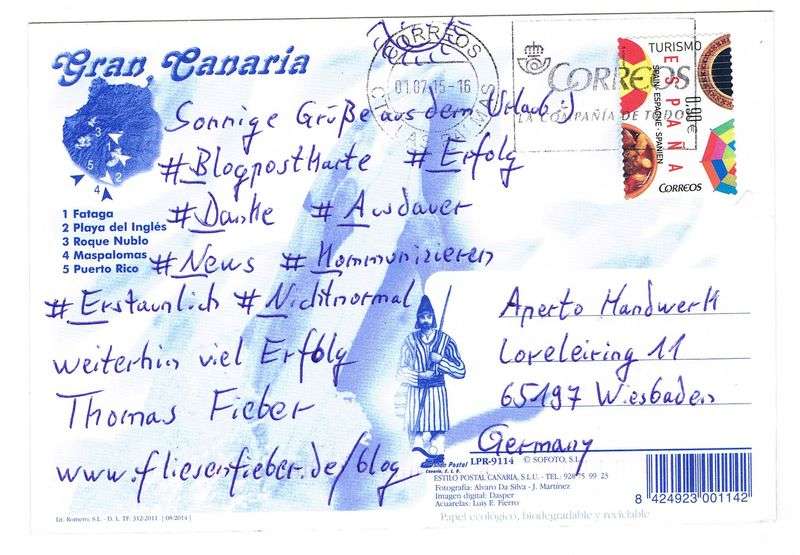 Gran Canaria
1 Fataga
2 Playa del Inglés
3 Roque Nublo
4 Maspalomas
5 Puerto Rico
Sonnige Grüße aus dem Urlaub :)
#Blogpostkarte #Erfolg
#Danke #Ausdauer
#News #Kommunizieren
#Erstaunlich #Nichtnormal
weiterhin viel Erfolg
Thomas Fieber
www.fliesenfieber.de/blog
CORREOS
01.07.15-16
CORREOS
LA COMPAÑÍA DE TODOS
TURISMO
ESPAÑA
SPAIN ESPAGNE SPANIEN
0,90€
CORREOS
Aperto Handwerk
Loreleiring 11
65197 Wiesbaden
Germany
Postal
LPR-9114 © SOFOTO, S.L.
ESTILO POSTAL CANARIA, S.L.U. - TEL.: 928 75 99 23
Fotografía: Alvaro Da Silva - J. Martínez
Imagen digital: Dasper
Acuarelas: Luis E. Fierro
8 424923 001142
Papel ecológico, biodegradable y reciclable
Lit. Romero, S.L. - D. L. TF. 312-2011 (08/2014)